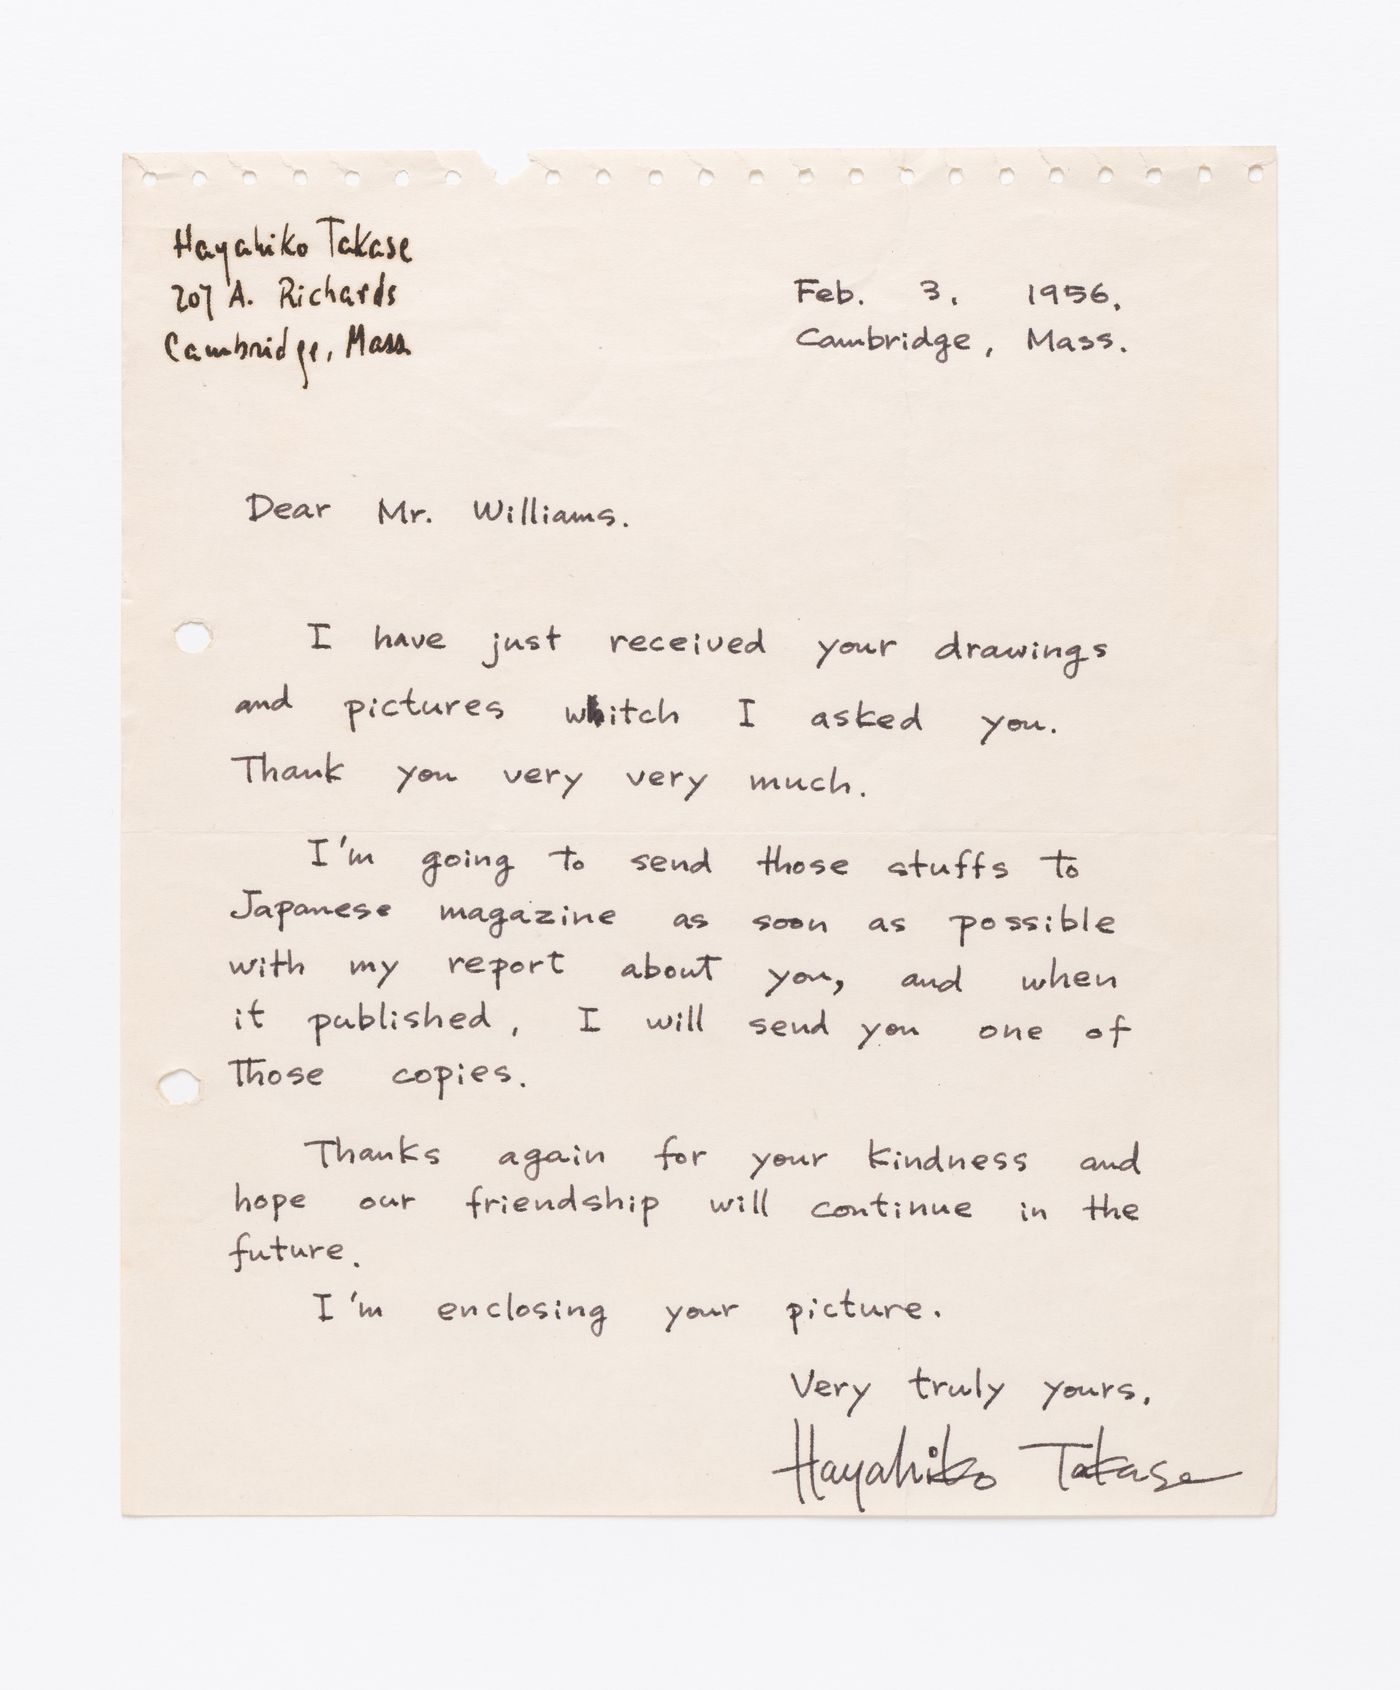 Hayahiko Takase
207 A. Richards
Cambridge, Mass
Feb. 3, 1956.
Cambridge, Mass.
Dear Mr. Williams.
I have just received your drawings
and pictures whitch I asked you.
Thank you very very much.
I'm going to send those stuffs to
Japanese magazine as soon as possible
with my report about you, and when
it published, I will send you one of
those copies.
Thanks again for your kindness and
hope our friendship will continue in the
future.
I'm enclosing your picture.
Very truly yours,
Hayahiko Takase